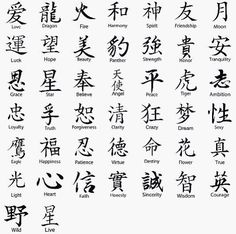 爱 龍 火 和 身 神 友 月
Love Dragon Fire Harmony Spirit Friendship Moon
運 望 美 豹 強 貴 安
Luck Hope Beauty Panther Strength Honor Tranquility
恩 星 奉 天使 平 虎 志
Grace Star Believe Angel Peace Tiger Ambition
忠 孚 恕 清 狂 梦 性
Loyalty Truth Forgiveness Clarity Crazy Dream Sexy
鹰 福 忍 德 命 花 真
Eagle Happiness Patience Virtue Destiny Flower True
光 心 信 實 誠 智 英
Light Heart Faith Honesty Sincerity Wisdom Courage
野 星
Wild Live